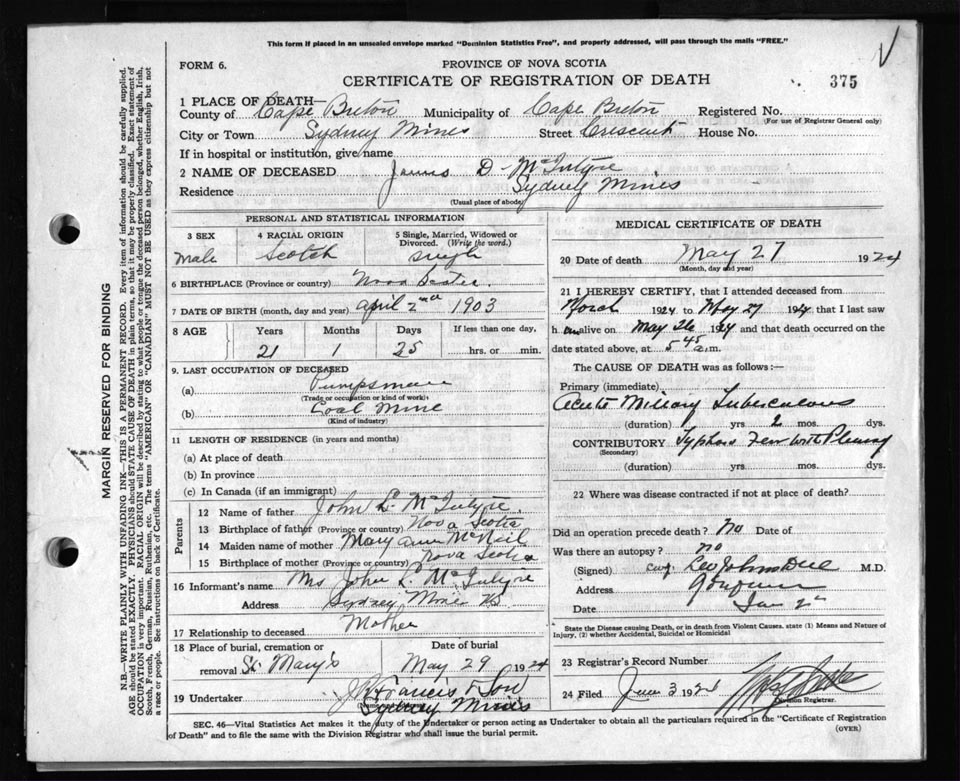 This form if placed in an unsealed envelope marked "Dominion Statistics Free", and properly addressed, will pass through the mails "FREE."
FORM 6.
PROVINCE OF NOVA SCOTIA
CERTIFICATE OF REGISTRATION OF DEATH
375
1 PLACE OF DEATH—
County of Cape Breton Municipality of Cape Breton Registered No.
(For use of Registrar General only)
City or Town Sydney Mines Street Crescent House No.
If in hospital or institution, give name
2 NAME OF DECEASED James D. McIntyre
Residence Sydney Mines
(Usual place of abode)
PERSONAL AND STATISTICAL INFORMATION
3 SEX 4 RACIAL ORIGIN 5 Single, Married, Widowed or Divorced. (Write the word.)
Male Scotch single
6 BIRTHPLACE (Province or country) Nova Scotia
7 DATE OF BIRTH (month, day and year) April 2nd 1903
8 AGE Years Months Days If less than one day,
21 1 25 hrs. or min.
9. LAST OCCUPATION OF DECEASED
(a) Pumpsman
(Trade or occupation or kind of work)
(b) Coal Mine
(Kind of industry)
11 LENGTH OF RESIDENCE (in years and months)
(a) At place of death
(b) In province
(c) In Canada (if an immigrant)
Parents
12 Name of father John L. McIntyre
13 Birthplace of father (Province or country) Nova Scotia
14 Maiden name of mother Mary Ann McNeil
15 Birthplace of mother (Province or country) Nova Scotia
16 Informant's name Mrs John L. McIntyre
Address Sydney Mines
17 Relationship to deceased Mother
18 Place of burial, cremation or removal St. Mary's
Date of burial May 29 1924
19 Undertaker Francis & Son
Sydney Mines
MEDICAL CERTIFICATE OF DEATH
20 Date of death May 27 1924
(Month, day and year)
21 I HEREBY CERTIFY, that I attended deceased from
March 1924 to May 27 1924 that I last saw
h im alive on May 26 1924 and that death occurred on the
date stated above, at 5 45 a.m.
The CAUSE OF DEATH was as follows:—
Primary (immediate)
Acute Miliary Tuberculosis
(duration) yrs 2 mos. dys.
CONTRIBUTORY Typhoid Fever with Pleurisy
(Secondary)
(duration) yrs. mos. dys.
22 Where was disease contracted if not at place of death?
Did an operation precede death? No Date of
Was there an autopsy? no
(Signed) M.D.
Address
Date
State the Disease causing Death, or in death from Violent Causes. state (1) Means and Nature of Injury, (2) whether Accidental, Suicidal or Homicidal
23 Registrar's Record Number
24 Filed June 3 1924
Division Registrar.
SEC. 46—Vital Statistics Act makes it the duty of the Undertaker or person acting as Undertaker to obtain all the particulars required in the "Certificate of Registration of Death" and to file the same with the Division Registrar who shall issue the burial permit.
(OVER)
MARGIN RESERVED FOR BINDING
N.B.—WRITE PLAINLY WITH UNFADING INK—THIS IS A PERMANENT RECORD. Every item of information should be carefully supplied.
AGE should be stated EXACTLY. PHYSICIANS should STATE CAUSE OF DEATH in plain terms, so that it may be properly classified. Exact statement of
OCCUPATION is very important. RACIAL ORIGIN will be described by stating to what people or tongue the deceased person belonged, whether English, Irish,
Scotch, French, German, Russian, Ruthenian, etc. The terms "AMERICAN" OR "CANADIAN" MUST NOT BE USED as they express citizenship but not
a race or people. See instructions on back of Certificate.